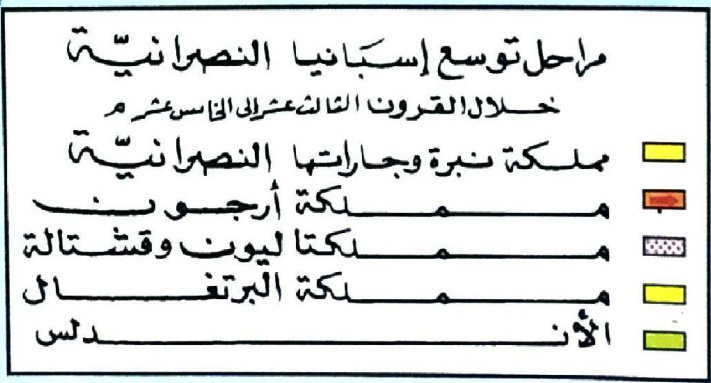 مراحل توسع إسبانيا النصرانيّة
خلال القرون الثالث عشر إلى الخامس عشر م
مملكة نبرة وجاراتها النصرانيّة
مملكة أرجون
مملكتا ليون وقشتالة
مملكة البرتغال
الأندلس